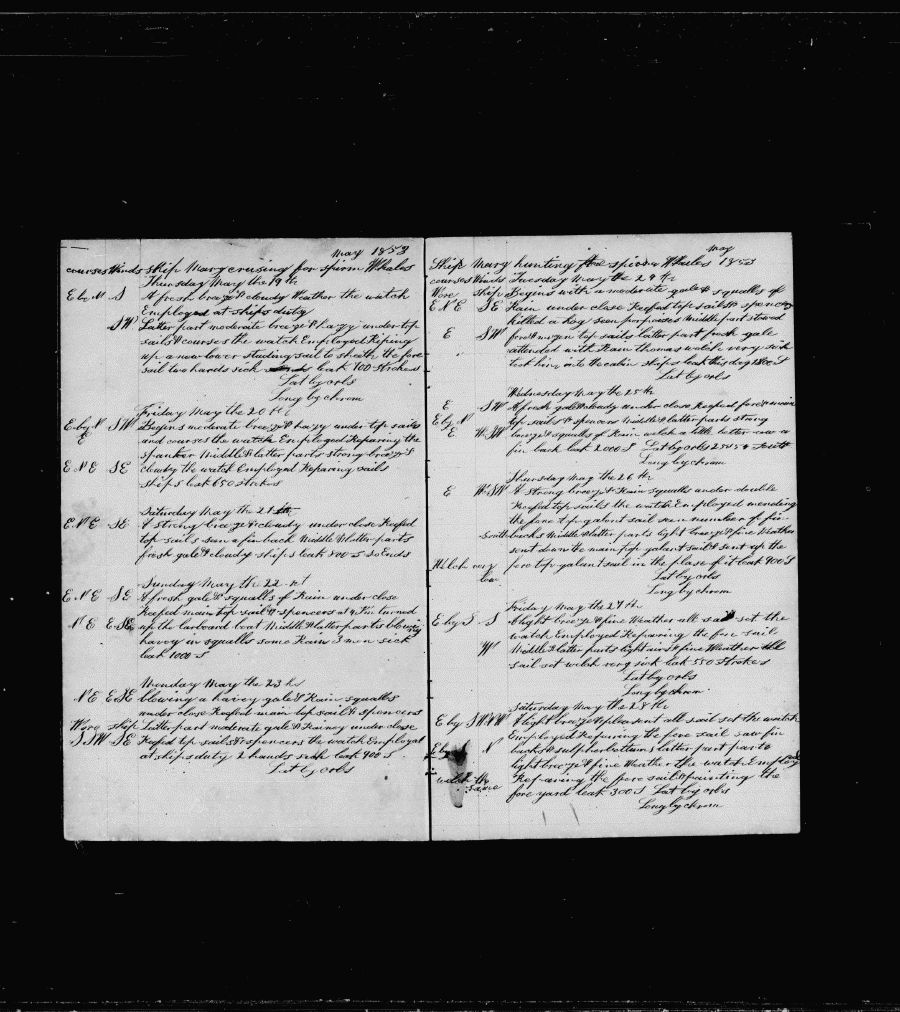 May 1853
courses Winds Ship Mary crusing for spirm Whales
Thursday May the 19 th
E by N S A fresh breze & cloudy Weather the watch
Employed at ships duty
SW Latter part moderate breeze & hazy under top
sails & courses the watch Employed Reping
up a new lower studing sail to sheath the fore
sail two hands sick leak 700 Strokes
Lat by orbs
Long by chrom
Friday May the 20 th
E by N SW Begins moderate breze & hazy under top sails
E and courses the watch Employed Reparing the
spanker Middle & latter parts strong breeze &
E N E SE cloudy the watch Employed Reparing sails
ships leak 650 strokes
Saturday May the 21 th
E N E SE A strong breeze & cloudy under close Reefed
top sails saw a fin back Middle & latter parts
fresh gale & cloudy ships leak 800 S so Ends
Sunday May the 22 nt
E N E SE A fresh gale & squalls of Rain under close
Reefed main top sail & spencers at 4 P.m turned
N E E SE up the larboard boat Middle & latter parts blowing
havey in squalls some Rain 3 men sick
leak 1000 S
Monday May the 23 th
N E E SE blewing a havey gale & Rain squalls
under close Reefed main top sail & spencers
Wore ship Latter part moderate gale & Rainey under close
S S W SE Reefed top sails & spencers the watch Employed
at ships duty 2 hands sick leak 900 S
Lat by orbs
May
Ship Mary hunting for spirm Whales 1853
courses Winds Tuesday May the 24 th
Wore ship Begins with a moderate gale & squalls of
E N E SE Rain under close Reefed top sails & spencers
killed a Hog seen porpoises Middle part stowed
E SW fore & mizen top sails latter part fresh gale
attended with Rain thomas welch very sick
took him into the cabin ships leak this day 1800 S
Lat by orbs
Wednesday May the 25 th
E SW A fresh gale & cloudy under close Reefed fore & main
E by N top sails & spencers Middle & latter parts strong
E W SW breeze & squalls of Rain welch a little better saw a
fin back leak 2000 S Lat by orbs
Long by chrom
Thursday May the 26 th
E W SW A strong breeze & Rain squalls under double
Reefed top sails the watch Employed mending
the fore top galant sail seen number of fin
South backs Middle & latter parts light breeze & fine Weather
sent down the main top galant sail & sent up the
Welch very fore top galant sail in the plase of it leak 900 S
low Lat by orbs
Long by chrom
Friday May the 27 th
E by S S A light breeze & fine Weather all sail set the
watch Employed Reparing the fore sail
W Middle & latter parts light airs & fine Weather all
sail set welch very sick leak 550 Strokes
Lat by orbs
Long by chrom
Saturday May the 28 th
E by S W A light breeze & pleasent all sail set the watch
Employed Reparing the fore sail saw fin
E by S N backs & sulpher bottoms latter part parts
light breeze & fine Weather the watch Employed
welch the Reparing the fore sail & painting the
same fore yard leak 300 S Lat by orbs
Long by chrom